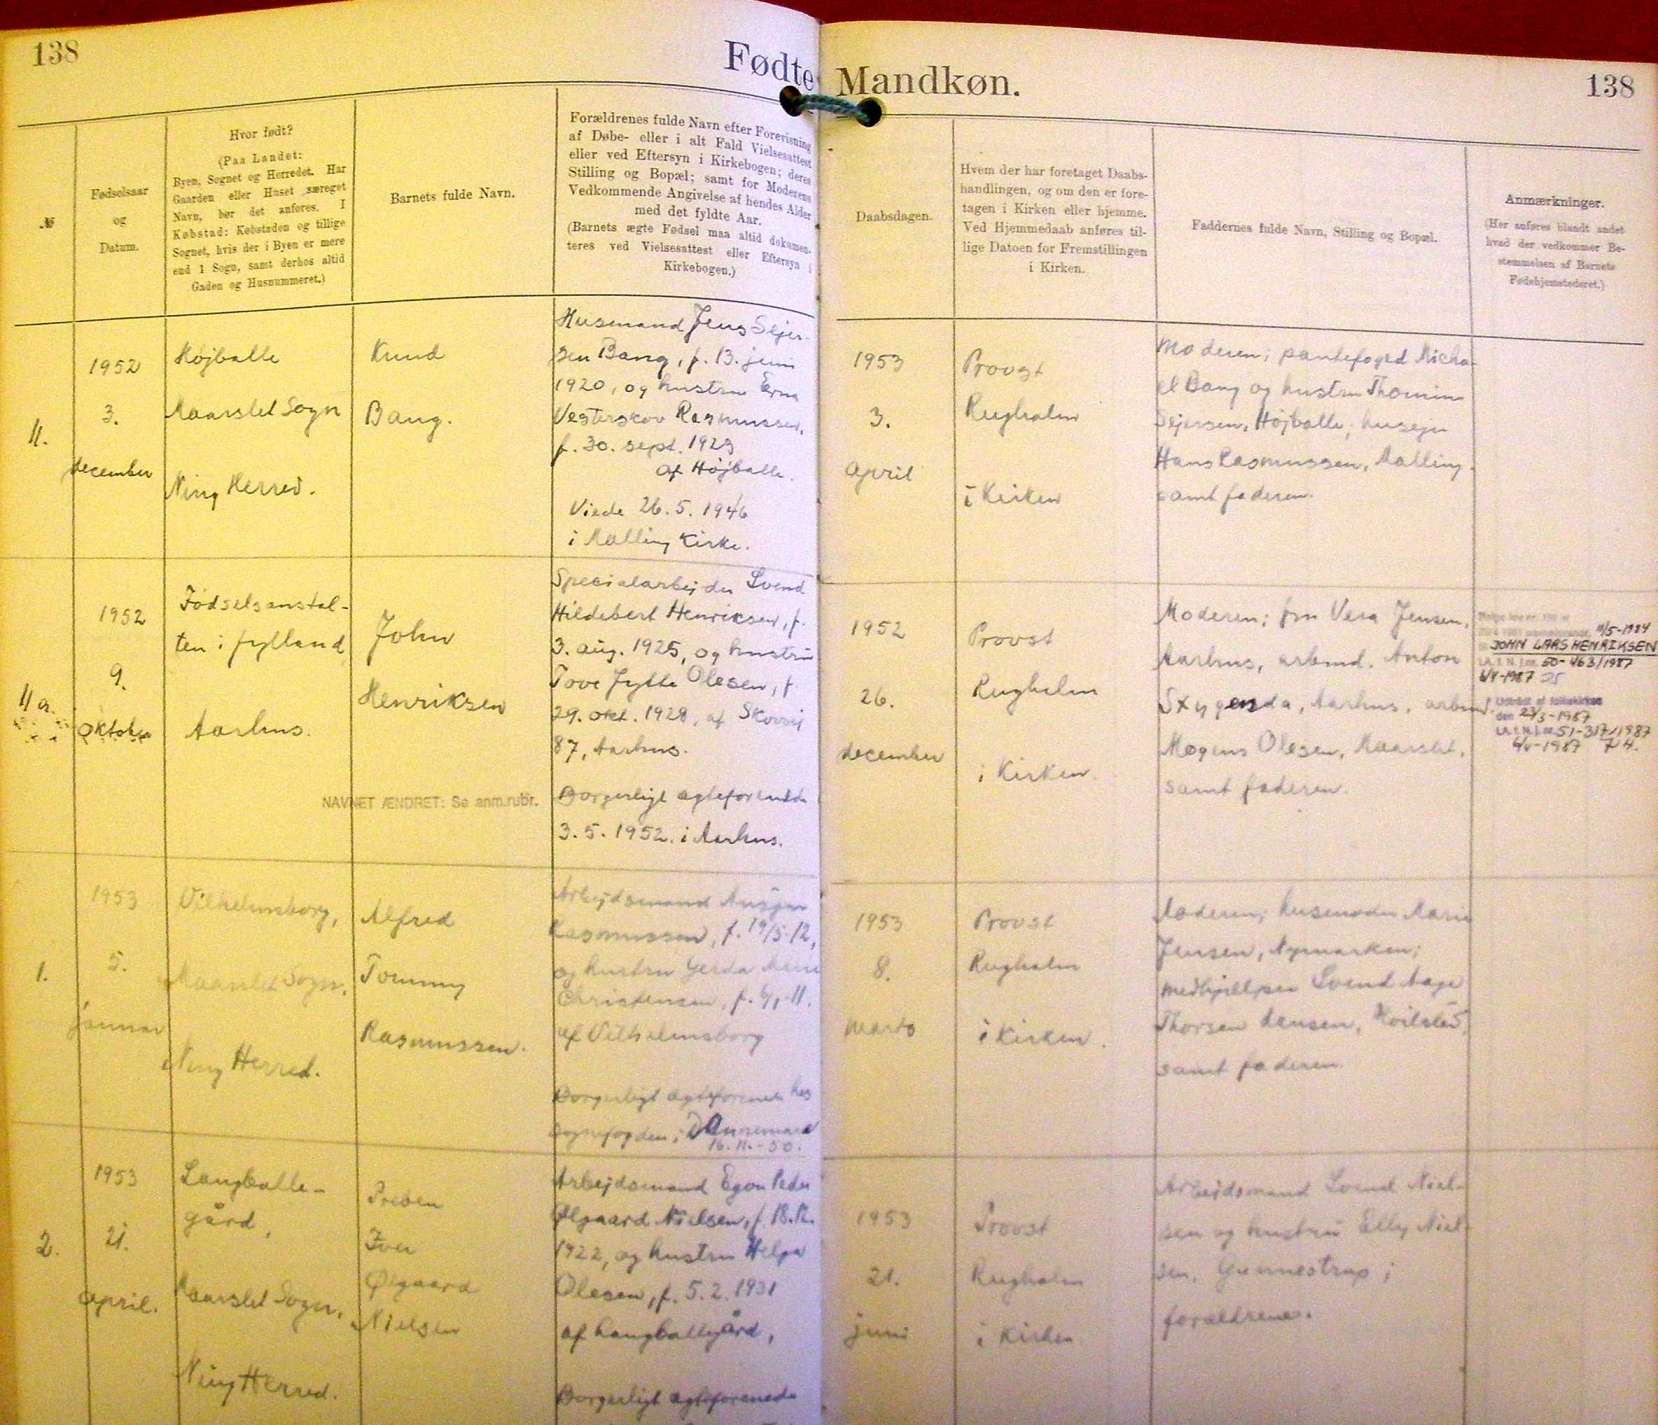 138
Fødte Mandkøn.
138
№
Fødselsaar
og
Datum.
Hvor født?
(Paa Landet:
Byen, Sognet og Herredet. Har
Gaarden eller Huset særeget
Navn, bør det anføres. I
Købstad: Købstaden og tillige
Sognet, hvis der i Byen er mere
end 1 Sogn, samt derhos altid
Gaden og Husnummeret.)
Barnets fulde Navn.
Forældrenes fulde Navn efter Forevisning
af Døbe- eller i alt Fald Vielsesattest
eller ved Eftersyn i Kirkebogen; deres
Stilling og Bopæl; samt for Moderens
Vedkommende Angivelse af hendes Alder
med det fyldte Aar.
(Barnets ægte Fødsel maa altid dokumen-
teres ved Vielsesattest eller Eftersyn i
Kirkebogen.)
Daabsdagen.
Hvem der har foretaget Daabs-
handlingen, og om den er fore-
tagen i Kirken eller hjemme.
Ved Hjemmedaab anføres til-
lige Datoen for Fremstillingen
i Kirken.
Faddernes fulde Navn, Stilling og Bopæl.
Anmærkninger.
(Her anføres blandt andet
hvad der vedkommer Be-
stemmelsen af Barnets
Fødehjemstederet.)
11.
1952
3.
december
Højballe
Maarslet Sogn
Ning Herred.
Knud
Bang.
Husmand Jens Sejer-
sen Bang, f. 13. juni
1920, og hustru Erna
Vesterskov Rasmussen,
f. 30. sept. 1923
af Højballe.
Viede 26.5.1946
i Malling Kirke.
1953
3.
april
Provst
Rugholm
i Kirken
Moderen; pantefoged Micha-
el Bang og hustru Thomine
Sejersen, Højballe; husejer
Hans Rasmussen, Malling.
samt faderen.
11 a.
1952
9.
oktober
Fødselsanstal-
ten i Jylland
Aarhus.
John
Henriksen
NAVNET ÆNDRET: Se anm.rubr.
Specialarbejder Svend
Hildebert Henriksen, f.
3. aug. 1925, og hustru
Tove Jytte Olesen, f
29. okt. 1928, af Skovvej
87, Aarhus.
Borgerligt ægteforenede
3.5.1952. i Aarhus.
1952
26.
december
Provst
Rugholm
i Kirken
Moderen; fru Vera Jensen,
Aarhus, arbmd. Anton
Stygenda, Aarhus, arbmd.
Mogens Olesen, Maarslet,
samt faderen.
11/5-1984
JOHN LARS HENRIKSEN
50-463/1987
Udtrådt af folkekirken
den 23/3-1987
51-317/1987
1.
1953
5.
januar
Vilhelmsborg,
Maarslet Sogn,
Ning Herred.
Alfred
Tommy
Rasmussen.
Arbejdsmand Ansgar
Rasmussen, f. 19/5-12,
og hustru Gerda Marie
Christensen, f. 6/1-11.
af Vilhelmsborg
Borgerligt ægteforenede hos
sognefogden i
16.11.-50.
1953
8.
marts
Provst
Rugholm
i Kirken.
Moderen; husmoder Marie
Jensen, Nymarken;
medhjælper Svend Aage
Thorsen Hansen, Hvilsted,
samt faderen.
2.
1953
21.
april.
Langballe-
gård,
Maarslet Sogn,
Ning Herred.
Preben
Iver
Ølgaard
Nielsen
Arbejdsmand Egon Peder
Ølgaard Nielsen, f. 18.12.
1922, og hustru Helga
Olesen, f. 5.2.1931
af Langballegård,
Borgerligt ægteforenede
1953
21.
juni
Provst
Rugholm
i Kirken
Arbejdsmand Svend Niel-
sen og hustru Elly Niel-
sen, Gunnestrup;
forældrene.